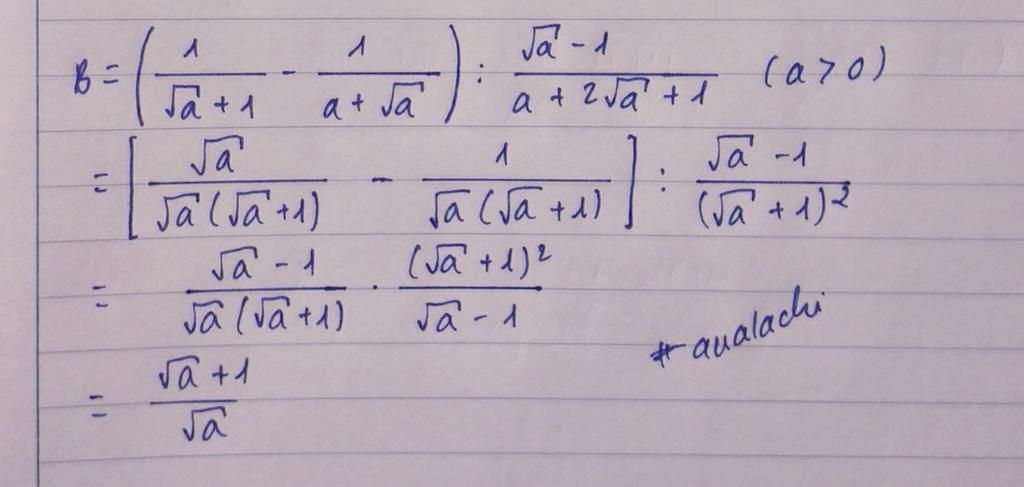 B = ( 1/(√a + 1) - 1/(a + √a) ) : (√a - 1)/(a + 2√a + 1) (a > 0)
= [ √a/(√a(√a + 1)) - 1/(√a(√a + 1)) ] : (√a - 1)/((√a + 1)²)
= (√a - 1)/(√a(√a + 1)) · ((√a + 1)²)/(√a - 1)
# aualachi
= (√a + 1)/√a